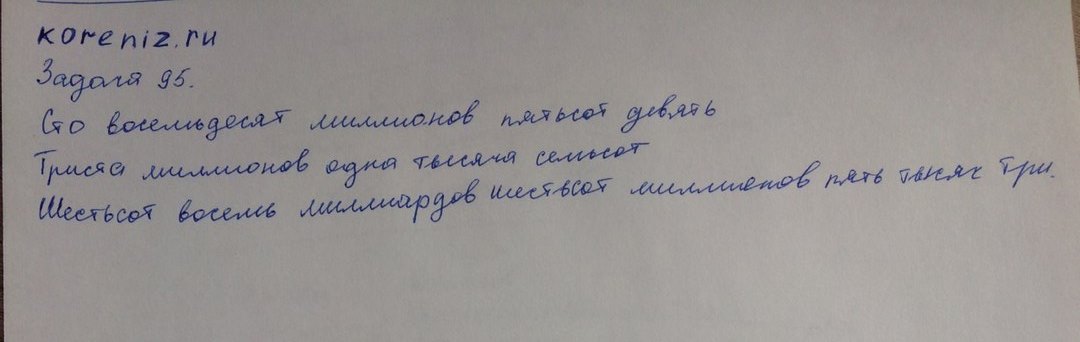 koreniz.ru
Задача 95.
Сто восемьдесят миллионов пятьсот девять
Триста миллионов одна тысяча семьсот
Шестьсот восемь миллиардов шестьсот миллионов пять тысяч три.